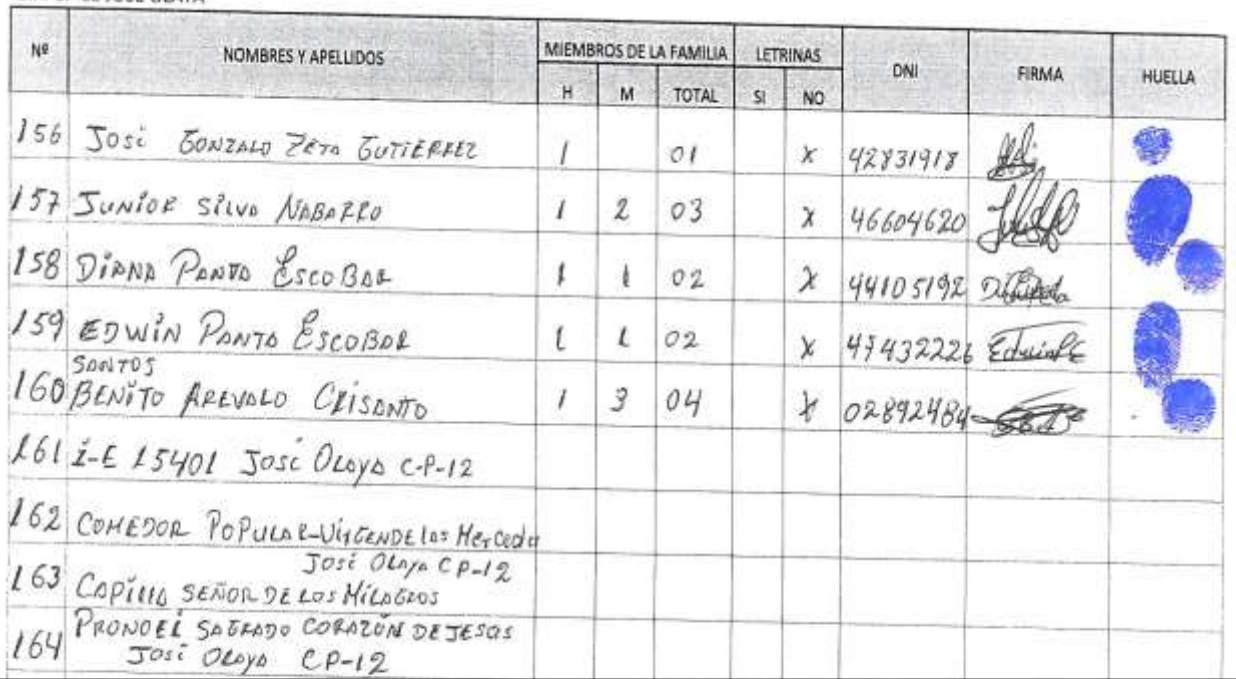 Nº NOMBRES Y APELLIDOS MIEMBROS DE LA FAMILIA LETRINAS DNI FIRMA HUELLA
H M TOTAL SI NO
156 José GONZALO ZETA GUTIERREZ 1 01 X 42831918
157 JUNIOR SILVA NABARRO 1 2 03 X 46604620
158 DIANA PANTA ESCOBAR 1 1 02 X 44105192
159 EDWIN PANTA ESCOBAR 1 1 02 X 47432226
SANTOS
160 BENITO AREVALO CRISANTO 1 3 04 X 02892484
161 I-E 15401 José OLAYA C-P-12
162 COMEDOR POPULAR-VIRGEN DE las Mercedes
José OLAYA CP-12
163 CAPILLA SEÑOR DE LOS MILAGROS
PRONOEI SAGRADO CORAZÓN DE JESUS
164 José OLAYA CP-12